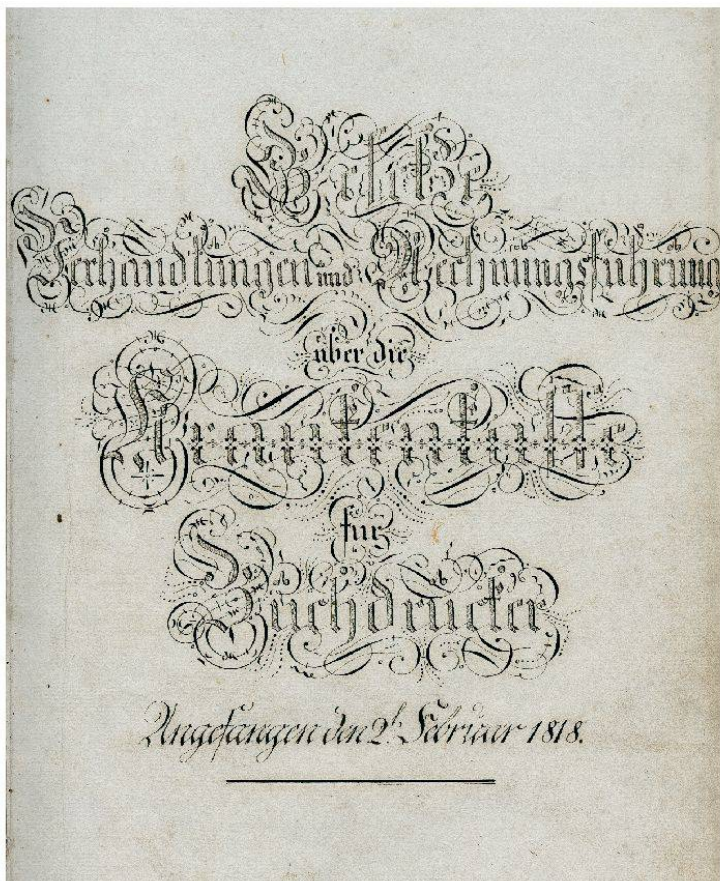 Verhandlungen und Rechnungsführung
über die
Krankenkaſſe
für
Buchdrucker
Angefangen den 2t. Februar 1818.